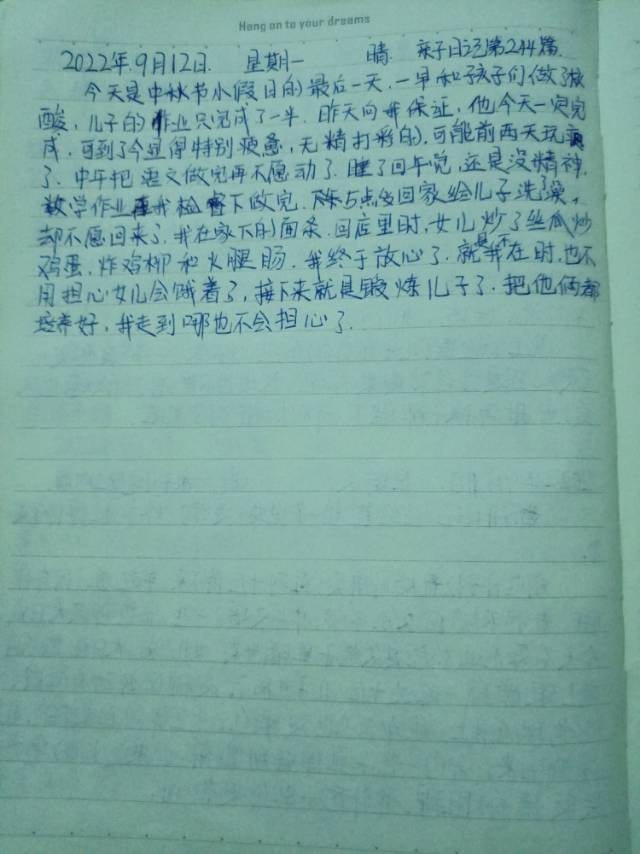 Hang on to your dreams
2022年.9月12日. 星期一 晴. 亲子日记第244篇.
今天是中秋节小假日的最后一天.一早和孩子们做了核
酸,儿子的作业只完成了一半.昨天向我保证,他今天一定完
成,可到了今显得特别疲惫,无精打彩的.可能前两天玩
了.中午把语文做完再不愿动了.睡了回午觉,还是没精神.
数学作业再我检督下做完.下午5点多回家给儿子洗了澡,
却不愿回来了.我在家下的面条.回店里时,女儿炒了丝瓜炒
鸡蛋,炸鸡柳和火腿肠.我终于放心了.就是我不在时,也不
用担心女儿会饿着了,接下来就是锻炼儿子了.把他俩都
培养好,我走到哪也不会担心了.